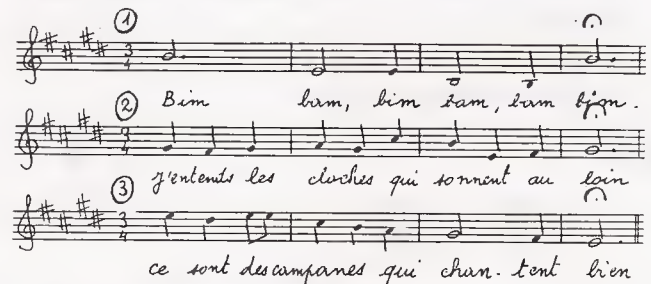 ①
3 4
Bim bam, bim bam, bam bim.
②
3 4
J'entends les cloches qui sonnent au loin
③
3 4
ce sont des campanes qui chan-tent bien